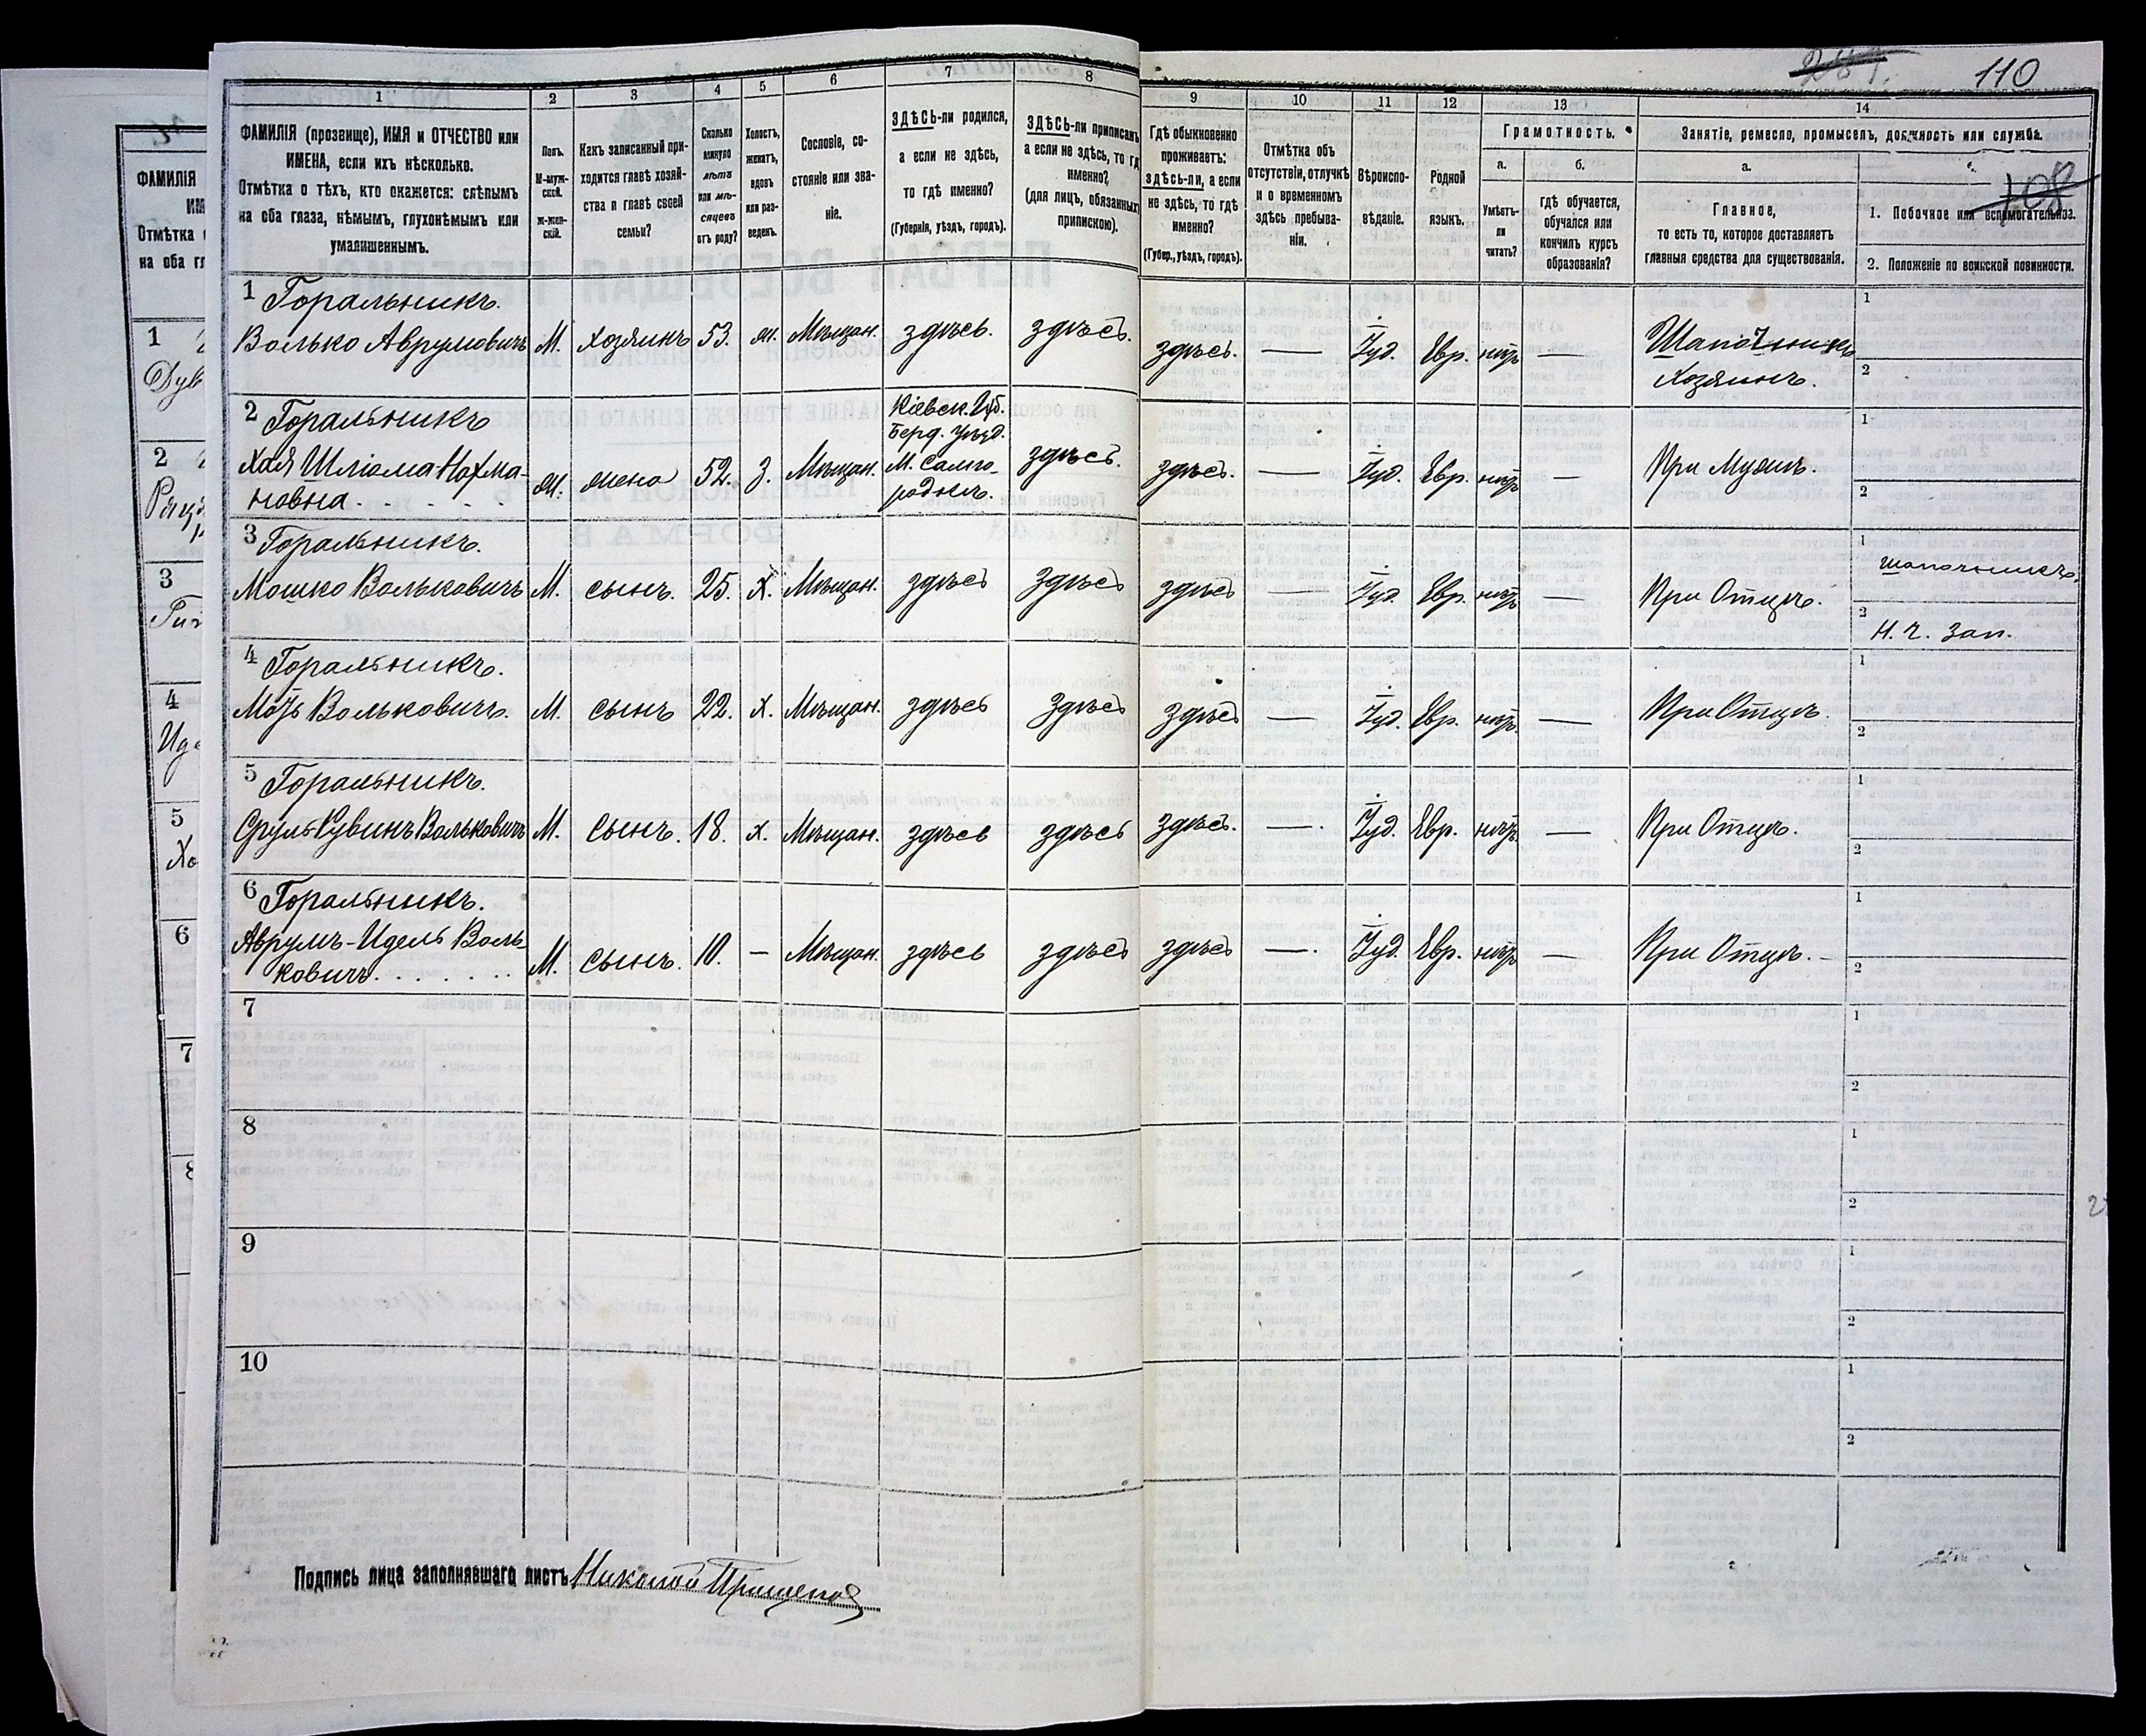 110
1
2
3
4
5
6
7
8
9
10
11
12
13
14
ФАМИЛІЯ (прозвище), ИМЯ и ОТЧЕСТВО или
ИМЕНА, если ихъ нѣсколько.
Отмѣтка о тѣхъ, кто окажется: слѣпымъ
на оба глаза, нѣмымъ, глухонѣмымъ или
умалишеннымъ.
Полъ.
М-муж-
ской.
ж-жен-
скій.
Какъ записанный при-
ходится главѣ хозяй-
ства и главѣ своей
семьи?
Сколько
минуло
лѣтъ
или мѣ-
сяцевъ
отъ роду?
Холостъ,
женатъ,
вдовъ
или раз-
веденъ.
Сословіе, со-
стояніе или зва-
ніе.
ЗДѢСЬ-ли родился,
а если не здѣсь,
то гдѣ именно?
(Губернія, уѣздъ, городъ).
ЗДѢСЬ-ли приписанъ,
а если не здѣсь, то гдѣ
именно?
(для лицъ, обязанныхъ
припискою).
Гдѣ обыкновенно
проживаетъ:
здѣсь-ли, а если
не здѣсь, то гдѣ
именно?
(Губер., уѣздъ, городъ).
Отмѣтка объ
отсутствіи, отлучкѣ
и о временномъ
здѣсь пребыва-
ніи.
Вѣроиспо-
вѣданіе.
Родной
языкъ.
Грамотность.
а.
б.
Умѣетъ-
ли
читать?
гдѣ обучается,
обучался или
кончилъ курсъ
образованія?
Занятіе, ремесло, промыселъ, должность или служба.
а.
Главное,
то есть то, которое доставляетъ
главныя средства для существованія.
108
1. Побочное или вспомогательное.
2. Положеніе по воинской повинности.
1 Горальникъ.
Волько Аврумовичъ М. хозяинъ 53. ж. Мѣщан. здѣсь. здѣсь. здѣсь. — Іуд. Евр. нѣтъ — Шапочникъ
Хозяинъ.
1
2
2 Горальникъ
Кіевск. Губ.
Берд. Уѣзд.
Хая Шліома Нохма- ж. жена 52. З. Мѣщан. М. Самго- здѣсь. здѣсь. — Іуд. Евр. нѣтъ — При Мужѣ.
новна . . . . . родкѣ.
1
2
3 Горальникъ.
Мошко Вольковичъ М. сынъ. 25. х. Мѣщан. здѣсь здѣсь здѣсь — Іуд. Евр. нѣтъ — При Отцѣ.
1 шапочникъ.
2 Н. Ч. Зап.
4 Горальникъ.
Вольковичъ. М. сынъ 22. х. Мѣщан. здѣсь здѣсь здѣсь — Іуд. Евр. нѣтъ. — При Отцѣ.
1
2
5 Горальникъ.
Сруль-Рувинъ Вольковичъ М. сынъ. 18. х. Мѣщан. здѣсь здѣсь здѣсь. — Іуд. Евр. нѣтъ — При Отцѣ.
1
2
6 Горальникъ.
Аврумъ-Идель Воль-
ковичъ . . . . . М. сынъ. 10. — Мѣщан. здѣсь здѣсь здѣсь — Іуд. Евр. нѣтъ — При Отцѣ. —
1
2
7
1
2
8
1
2
9
1
2
10
1
2
Подпись лица заполнявшаго листъ Николай
ФАМИЛІЯ
Отмѣтка
на оба гл
1
2
3
4
5
6
7
8